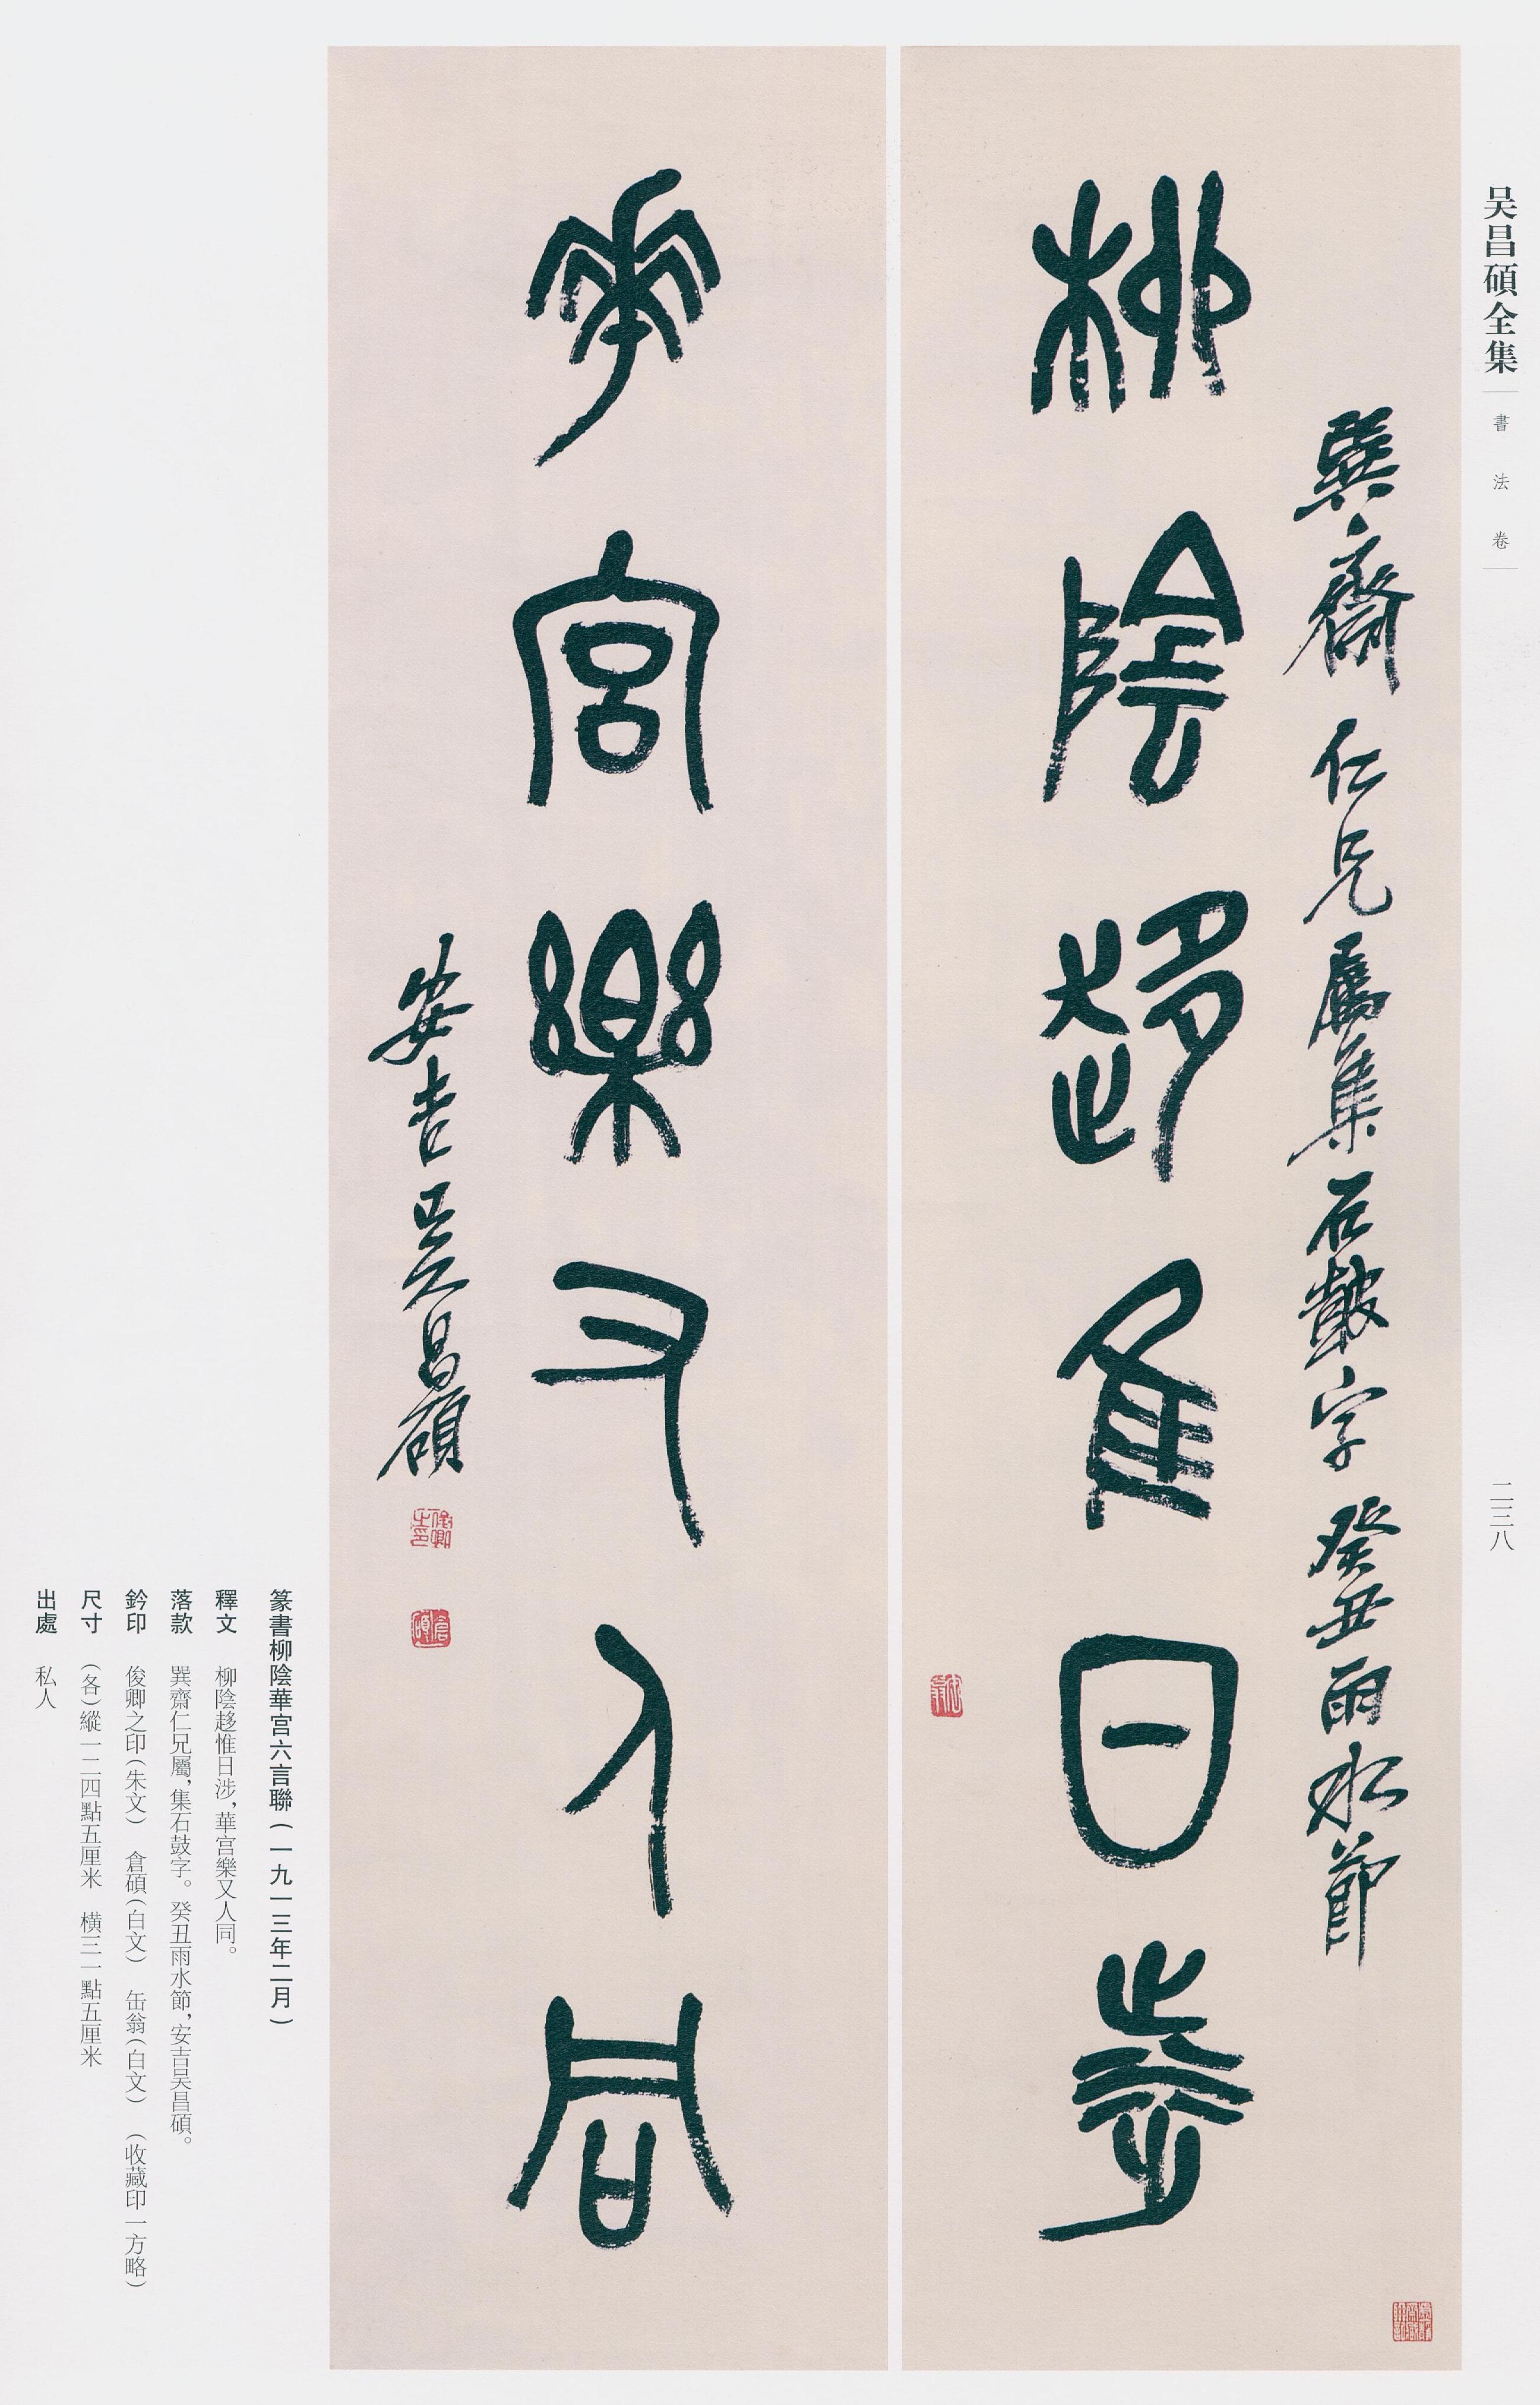 吴昌碩全集
書法卷
二三八
巽齋仁兄屬集石鼓字癸丑雨水節
柳陰趍隹日涉
華宮樂又人同
安吉吴昌碩
俊卿之印
倉碩
缶翁
篆書柳陰華宫六言聯(一九一三年二月)
釋文 柳陰趍惟日涉,華宫樂又人同。
落款 巽齋仁兄屬,集石鼓字。癸丑雨水節,安吉吴昌碩。
鈐印 俊卿之印(朱文) 倉碩(白文) 缶翁(白文) (收藏印一方略)
尺寸 (各)縱一二四點五厘米 橫三一點五厘米
出處 私人